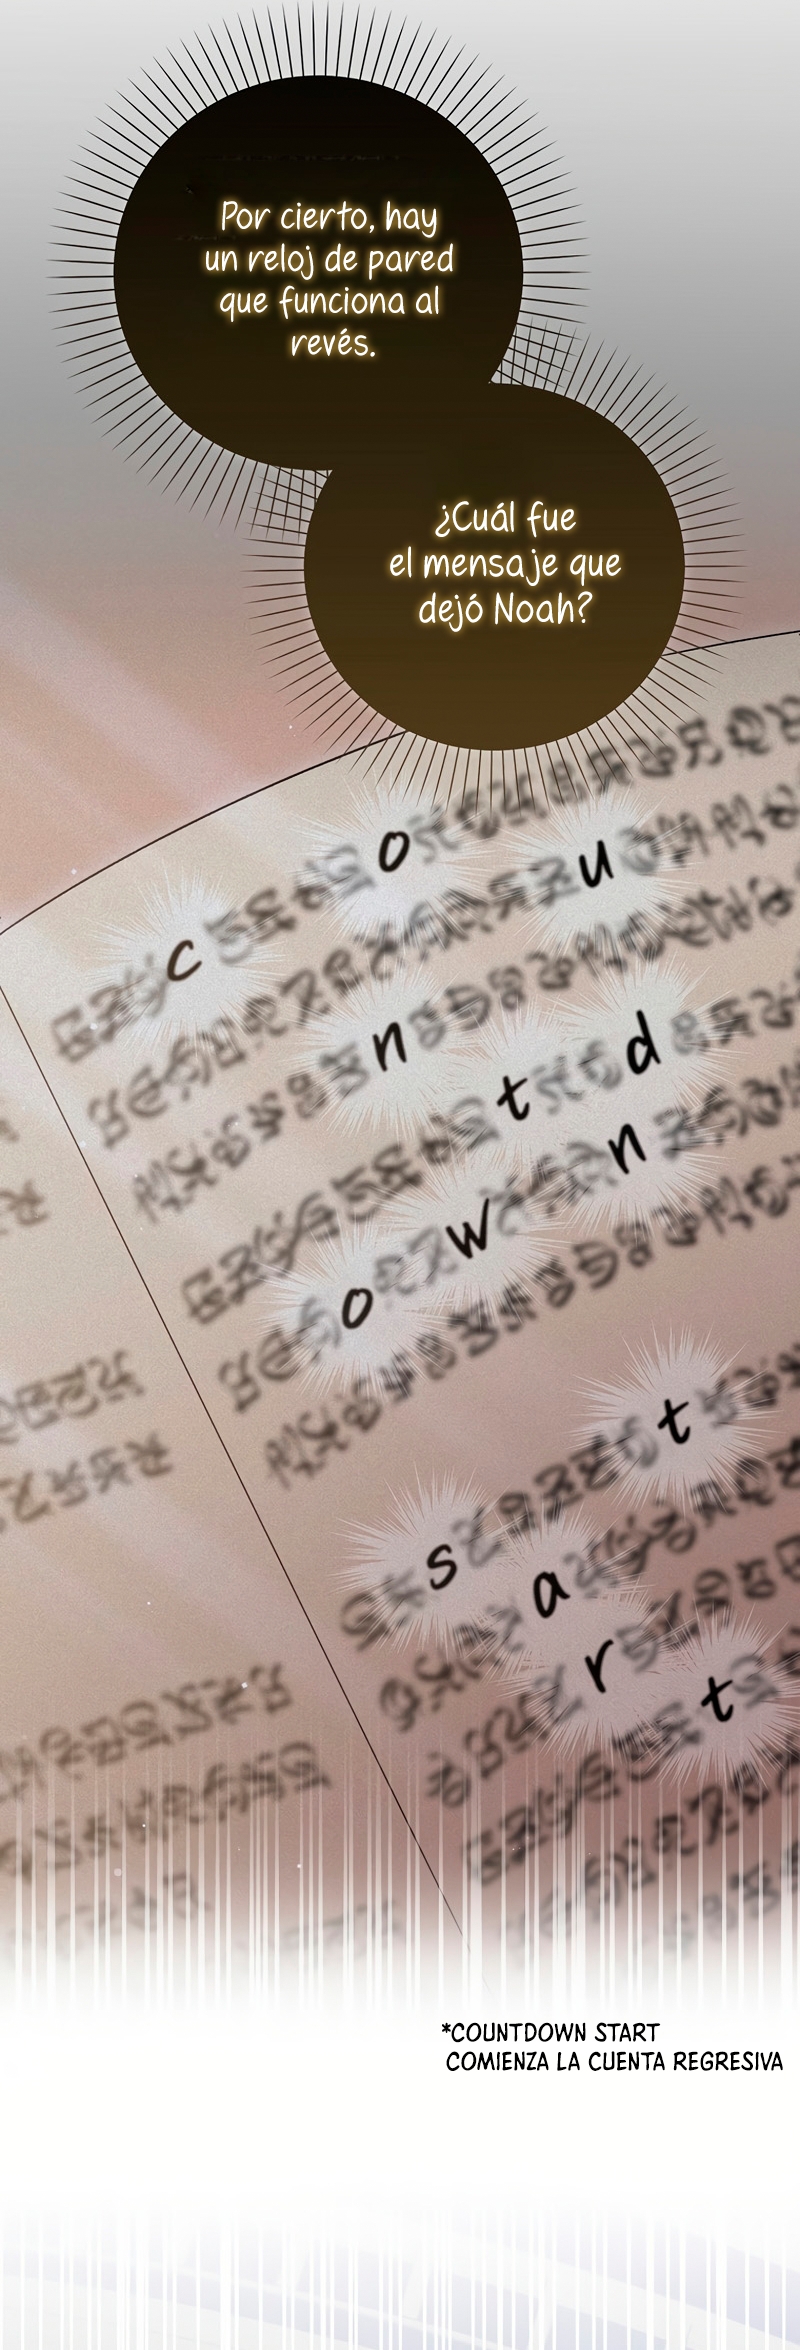 Por cierto, hay
un reloj de pared
que funciona al
revés.
¿Cuál fue
el mensaje que
dejó Noah?
c o u
n t d
o w n
s t
a r t
*COUNTDOWN START
COMIENZA LA CUENTA REGRESIVA